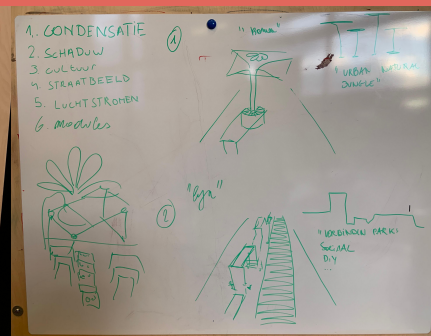 1. CONDENSATIE
2. SCHADUW
3 CULTUUR
4 STRAATBEELD
5. LUCHTSTROMEN
6. modules
1
"URBAN
JUNGLE"
2
"VERBINDEN PARK
SOCIAAL
DIY
...